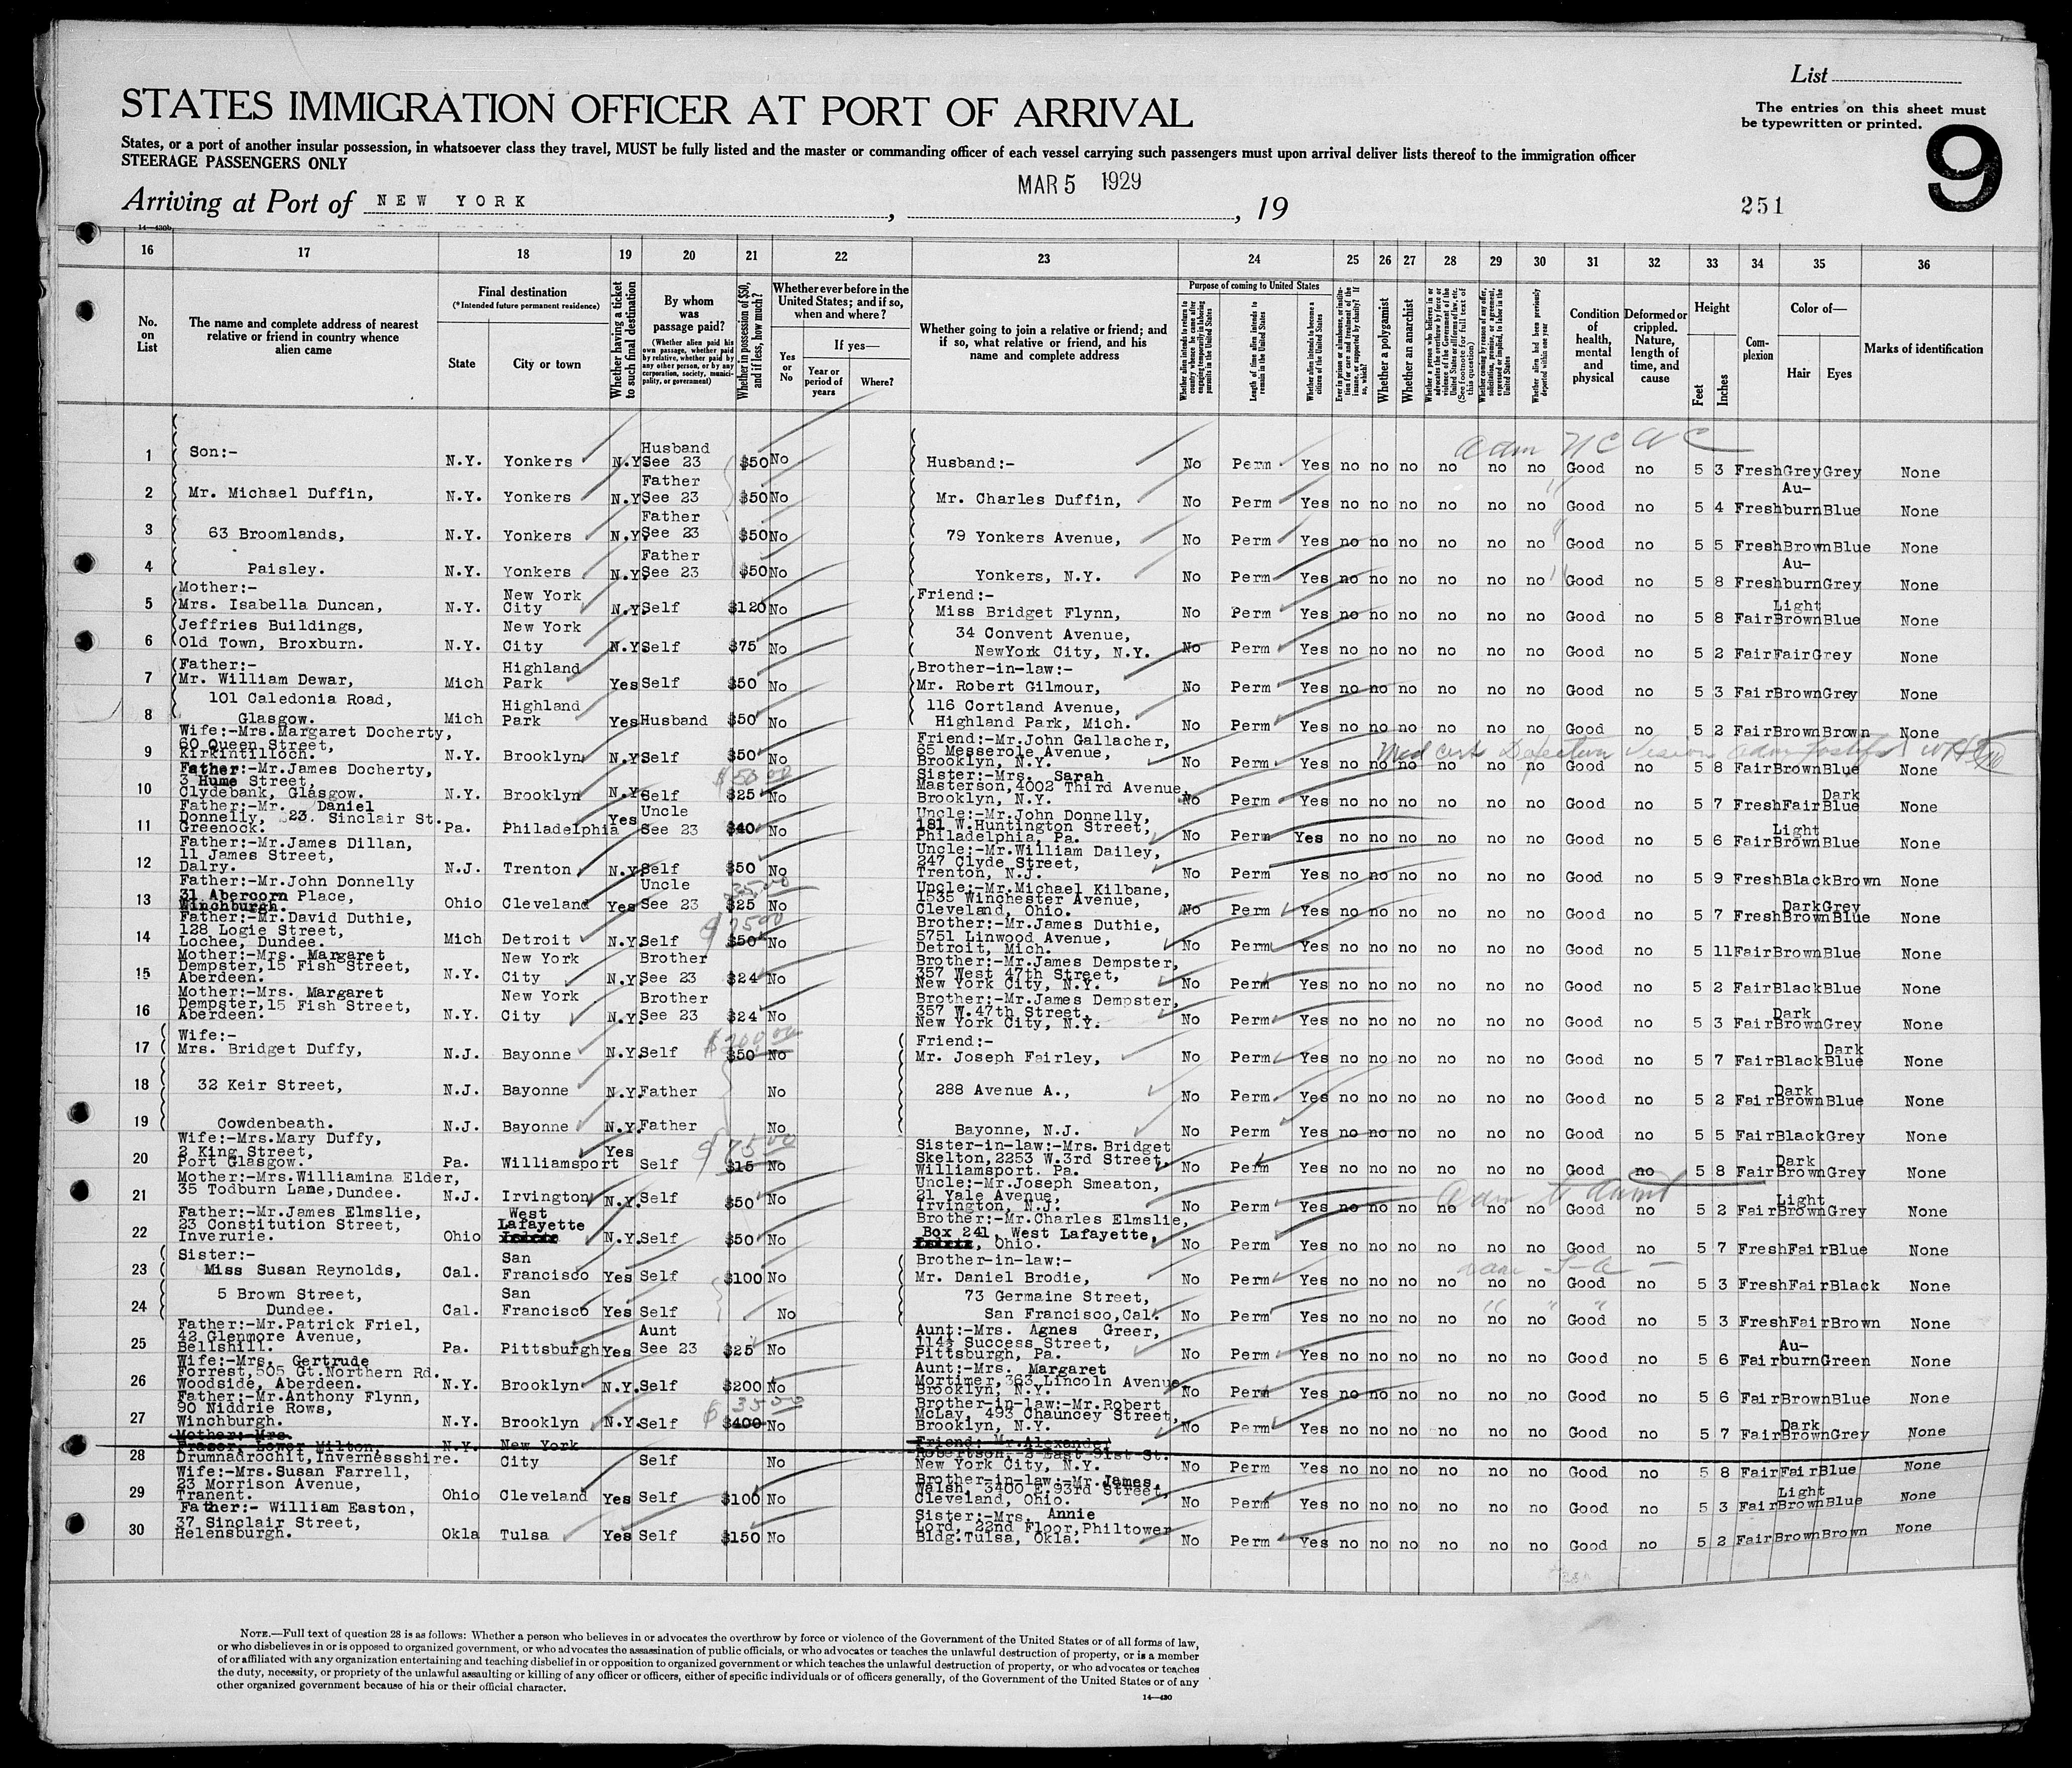 List
STATES IMMIGRATION OFFICER AT PORT OF ARRIVAL
The entries on this sheet must
be typewritten or printed.
9
States, or a port of another insular possession, in whatsoever class they travel, MUST be fully listed and the master or commanding officer of each vessel carrying such passengers must upon arrival deliver lists thereof to the immigration officer
STEERAGE PASSENGERS ONLY
MAR 5 1929
Arriving at Port of NEW YORK , , 19 251
14—430b
16 17 18 19 20 21 22 23 24 25 26 27 28 29 30 31 32 33 34 35 36
No. on List
The name and complete address of nearest relative or friend in country whence alien came
Final destination
(*Intended future permanent residence)
State City or town
Whether having a ticket to such final destination
By whom was passage paid?
(Whether alien paid his own passage, whether paid by relative, whether paid by any other person, or by any corporation, society, municipality, or government)
Whether in possession of $50, and if less, how much?
Whether ever before in the United States; and if so, when and where?
Yes or No
If yes—
Year or period of years Where?
Whether going to join a relative or friend; and if so, what relative or friend, and his name and complete address
Purpose of coming to United States
Whether alien intends to return to country whence he came after engaging temporarily in laboring pursuits in the United States
Length of time alien intends to remain in the United States
Whether alien intends to become a citizen of the United States
Ever in prison or almshouse, or institution for care and treatment of the insane, or supported by charity? If so, which?
Whether a polygamist
Whether an anarchist
(See footnote for full text of this question)
Whether coming by reason of any offer, solicitation, promise, or agreement, expressed or implied, to labor in the United States
Whether alien had been previously deported within one year
Condition of health, mental and physical
Deformed or crippled. Nature, length of time, and cause
Height
Feet Inches
Complexion
Color of—
Hair Eyes
Marks of identification
1 Son:- N.Y. Yonkers N.Y. Husband See 23 $50 No Husband:- No Perm Yes no no no no no no Good no 5 3 Fresh Grey Grey None
2 Mr. Michael Duffin, N.Y. Yonkers N.Y. Father See 23 $50 No Mr. Charles Duffin, No Perm Yes no no no no no no Good no 5 4 Fresh Au-burn Blue None
3 63 Broomlands, N.Y. Yonkers N.Y. Father See 23 $50 No 79 Yonkers Avenue, No Perm Yes no no no no no no Good no 5 5 Fresh Brown Blue None
4 Paisley. N.Y. Yonkers N.Y. Father See 23 $50 No Yonkers, N.Y. No Perm Yes no no no no no no Good no 5 8 Fresh Au-burn Grey None
5 Mother:- Mrs. Isabella Duncan, N.Y. New York City N.Y. Self $120 No Friend:- Miss Bridget Flynn, No Perm Yes no no no no no no Good no 5 8 Fair Light Brown Blue None
6 Jeffries Buildings, Old Town, Broxburn. N.Y. New York City N.Y. Self $75 No 34 Convent Avenue, NewYork City, N.Y. No Perm Yes no no no no no no Good no 5 2 Fair Fair Grey None
7 Father:- Mr. William Dewar, Mich Highland Park Yes Self $50 No Brother-in-law:- Mr. Robert Gilmour, No Perm Yes no no no no no no Good no 5 3 Fair Brown Grey None
8 101 Caledonia Road, Glasgow. Mich Highland Park Yes Husband $50 No 116 Cortland Avenue, Highland Park, Mich. No Perm Yes no no no no no no Good no 5 2 Fair Brown Brown None
9 Wife:-Mrs.Margaret Docherty, 60 Queen Street, Kirkintilloch. N.Y. Brooklyn N.Y. Self $50 No Friend:-Mr.John Gallacher, 65 Messerole Avenue, Brooklyn, N.Y. No Perm Yes no no no no no no Good no 5 8 Fair Brown Blue None
Med cert Defective vision
10 Father:-Mr.James Docherty, 3 Hume Street, Clydebank, Glasgow. N.Y. Brooklyn N.Y. Self $50.00 $25 No Sister:-Mrs. Sarah Masterson,4002 Third Avenue, Brooklyn, N.Y. No Perm Yes no no no no no no Good no 5 7 Fresh Fair Dark Blue None
11 Father:-Mr. Daniel Donnelly, 23. Sinclair St. Greenock. Pa. Philadelphia Yes Uncle See 23 $40 No Uncle:-Mr.John Donnelly, 181 W.Huntington Street, Philadelphia, Pa. No Perm Yes no no no no no no Good no 5 6 Fair Light Brown Blue None
12 Father:-Mr.James Dillan, 11 James Street, Dalry. N.J. Trenton N.Y. Self $50 No Uncle:-Mr.William Dailey, 247 Clyde Street, Trenton, N.J. No Perm Yes no no no no no no Good no 5 9 Fresh Black Brown None
13 Father:-Mr.John Donnelly 31 Abercorn Place, Winchburgh. Ohio Cleveland Yes Uncle See 23 35.00 $25 No Uncle:-Mr.Michael Kilbane, 1535 Winchester Avenue, Cleveland, Ohio. No Perm Yes no no no no no no Good no 5 7 Fresh Dark Brown Grey Blue None
14 Father:-Mr.David Duthie, 128 Logie Street, Lochee, Dundee. Mich Detroit N.Y. Self $50 No Brother:-Mr.James Duthie, 5751 Linwood Avenue, Detroit, Mich. No Perm Yes no no no no no no Good no 5 11 Fair Brown Blue None
15 Mother:-Mrs. Margaret Dempster,15 Fish Street, Aberdeen. N.Y. New York City N.Y. Brother See 23 $24 No Brother:-Mr.James Dempster, 357 West 47th Street, New York City, N.Y. No Perm Yes no no no no no no Good no 5 2 Fair Black Blue None
16 Mother:-Mrs. Margaret Dempster,15 Fish Street, Aberdeen. N.Y. New York City N.Y. Brother See 23 $24 No Brother:-Mr.James Dempster, 357 W.47th Street, New York City, N.Y. No Perm Yes no no no no no no Good no 5 3 Fair Dark Brown Grey None
17 Wife:- Mrs. Bridget Duffy, N.J. Bayonne N.Y. Self $200.00 $50 No Friend:- Mr. Joseph Fairley, No Perm Yes no no no no no no Good no 5 7 Fair Black Dark Blue None
18 32 Keir Street, N.J. Bayonne N.Y. Father No 288 Avenue A., No Perm Yes no no no no no no Good no 5 2 Fair Dark Brown Blue None
19 Cowdenbeath. N.J. Bayonne N.Y. Father No Bayonne, N.J. No Perm Yes no no no no no no Good no 5 5 Fair Black Grey None
20 Wife:-Mrs.Mary Duffy, 2 King Street, Port Glasgow. Pa. Williamsport Yes Self $75.00 $15 No Sister-in-law:-Mrs. Bridget Skelton,2253 W.3rd Street, Williamsport. Pa. No Perm Yes no no no no no no Good no 5 8 Fair Dark Brown Grey None
21 Mother:-Mrs.Williamina Elder, 35 Todburn Lane,Dundee. N.J. Irvington N.Y. Self $50 No Uncle:-Mr.Joseph Smeaton, 21 Yale Avenue, Irvington, N.J. No Perm Yes no no no no no no Good no 5 2 Fair Light Brown Grey None
Adm to Aunt
22 Father:-Mr.James Elmslie, 23 Constitution Street, Inverurie. Ohio West Lafayette N.Y. Self $50 No Brother:-Mr.Charles Elmslie, Box 241, West Lafayette, Ohio. No Perm Yes no no no no no no Good no 5 7 Fresh Fair Blue None
23 Sister:- Miss Susan Reynolds, Cal. San Francisco Yes Self $100 No Brother-in-law:- Mr. Daniel Brodie, No Perm Yes no no no no no no Good no 5 3 Fresh Fair Black None
24 5 Brown Street, Dundee. Cal. San Francisco Yes Self No 73 Germaine Street, San Francisco,Cal. No Perm Yes no no no no no no Good no 5 3 Fresh Fair Brown None
25 Father:-Mr.Patrick Friel, 42 Glenmore Avenue, Bellshill. Pa. Pittsburgh Yes Aunt See 23 $25 No Aunt:-Mrs. Agnes Greer, 114½ Success Street, Pittsburgh, Pa. No Perm Yes no no no no no no Good no 5 6 Fair Au-burn Green None
26 Wife:-Mrs. Gertrude Forrest,505 Gt.Northern Rd. Woodside, Aberdeen. N.Y. Brooklyn N.Y. Self $200 No Aunt:-Mrs. Margaret Mortimer,363 Lincoln Avenue, Brooklyn, N.Y. No Perm Yes no no no no no no Good no 5 6 Fair Brown Blue None
27 Father:-Mr.Anthony Flynn, 90 Niddrie Rows, Winchburgh. N.Y. Brooklyn N.Y. Self $400 No Brother-in-law:-Mr.Robert McLay, 493 Chauncey Street, Brooklyn, N.Y. No Perm Yes no no no no no no Good no 5 7 Fair Dark Brown Grey None
28 Mother:-Mrs. Fraser, Lower Milton, Drumnadrochit,Invernessshire. N.Y. New York City Self No Friend:-Mr.Alexander Robertson, 3 East 91st St. New York City, N.Y. No Perm Yes no no no no no no Good no 5 8 Fair Fair Blue None
29 Wife:-Mrs.Susan Farrell, 23 Morrison Avenue, Tranent. Ohio Cleveland Yes Self $100 No Brother-in-law:-Mr.James Walsh, 3400 E.93rd Street, Cleveland, Ohio. No Perm Yes no no no no no no Good no 5 3 Fair Light Brown Blue None
30 Father:- William Easton, 37 Sinclair Street, Helensburgh. Okla Tulsa Yes Self $150 No Sister:-Mrs. Annie Lord, 22nd Floor,Philtower Bldg.Tulsa, Okla. No Perm Yes no no no no no no Good no 5 2 Fair Brown Brown None
NOTE.—Full text of question 28 is as follows: Whether a person who believes in or advocates the overthrow by force or violence of the Government of the United States or of all forms of law,
or who disbelieves in or is opposed to organized government, or who advocates the assassination of public officials, or who advocates or teaches the unlawful destruction of property, or is a member
of or affiliated with any organization entertaining and teaching disbelief in or opposition to organized government or which teaches the unlawful destruction of property, or who advocates or teaches
the duty, necessity, or propriety of the unlawful assaulting or killing of any officer or officers, either of specific individuals or of officers generally, of the Government of the United States or of any
other organized government because of his or their official character.
14—430